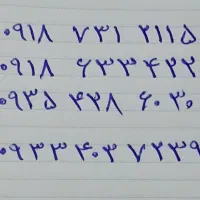 ۰۹۱۸ ۷۳۱ ۲۱۱۵
۰۹۱۸ ۶۳۳ ۴۲۲
۰۹۳۵ ۴۳۸ ۶۰۳۰
۰۹۳۳ ۴۰۳ ۷۲۳۹